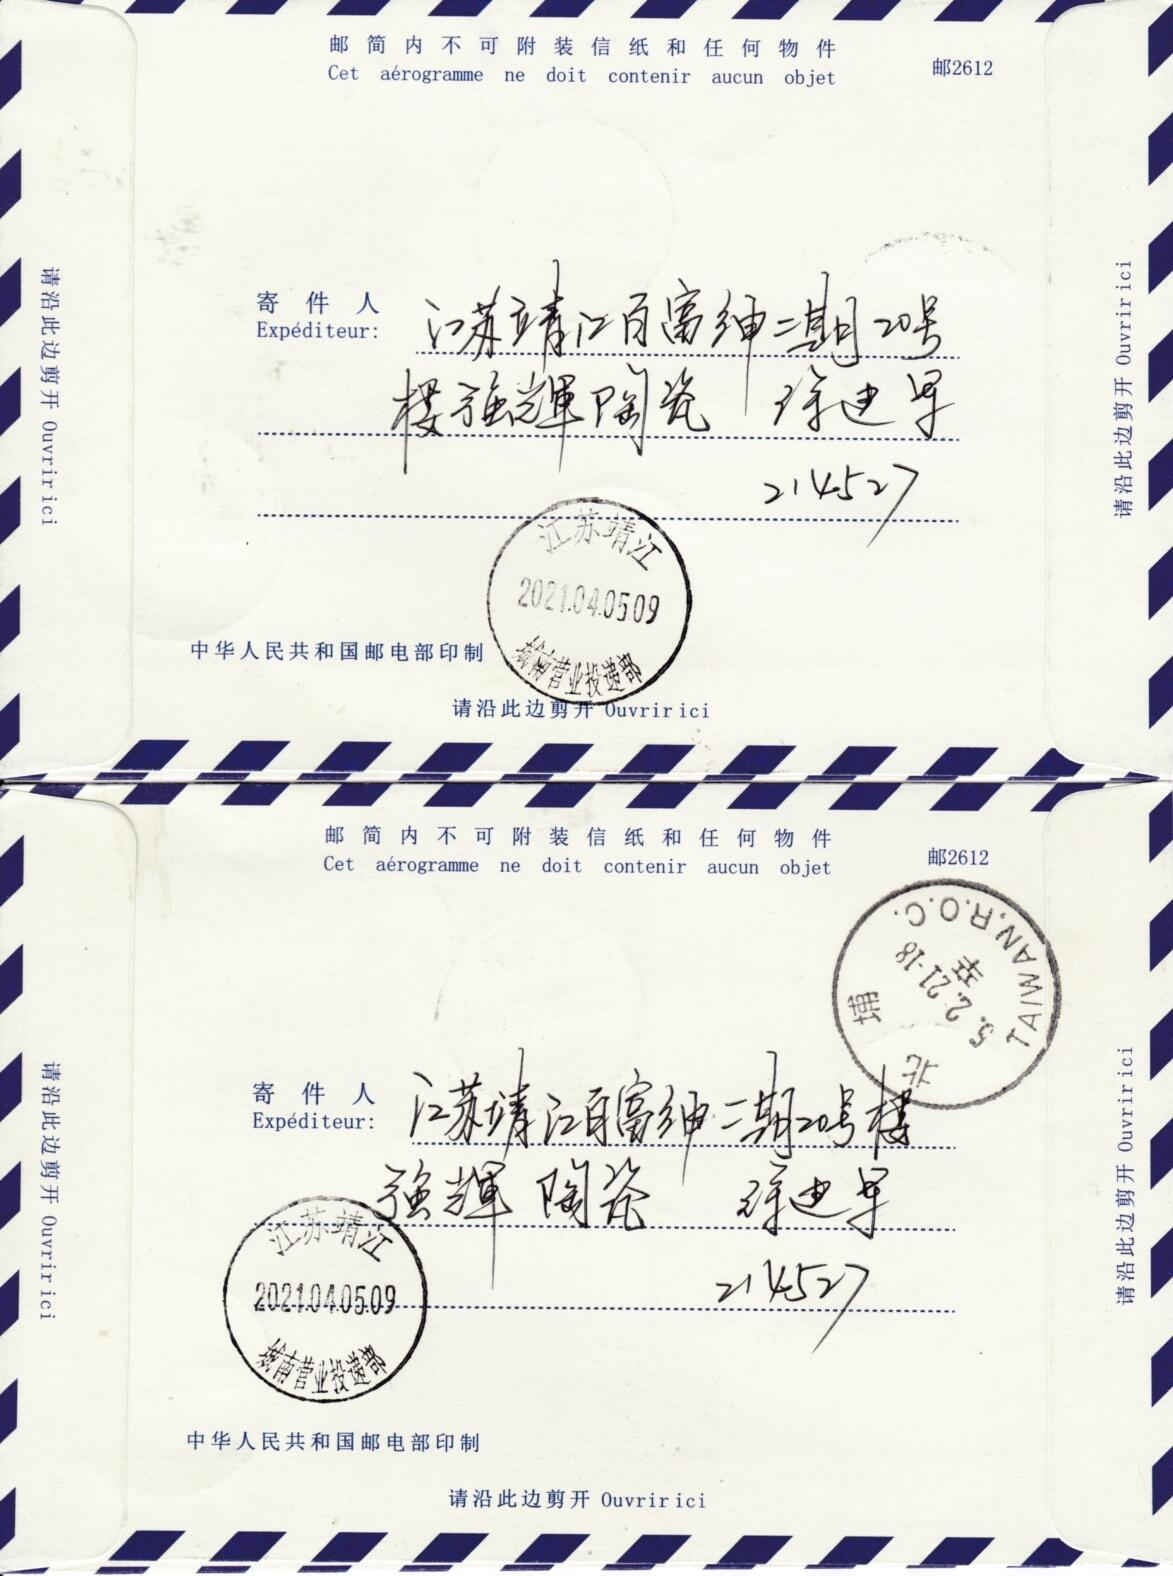 邮简内不可附装信纸和任何物件
Cet aérogramme ne doit contenir aucun objet
邮2612
请沿此边剪开 Ouvrir ici
请沿此边剪开 Ouvrir ici
寄件人
Expéditeur:
江苏靖江百富绅二期20号
楼強輝陶瓷 徐建军
214527
江苏靖江
2021.04.05.09
城南营业投递部
中华人民共和国邮电部印制
请沿此边剪开 Ouvrir ici
邮简内不可附装信纸和任何物件
Cet aérogramme ne doit contenir aucun objet
邮2612
TAIWAN,R.O.C.
5.2.21-18
埔
北
请沿此边剪开 Ouvrir ici
请沿此边剪开 Ouvrir ici
寄件人
Expéditeur:
江苏靖江百富绅二期20号楼
強輝陶瓷 徐建军
214527
江苏靖江
2021.04.05.09
城南营业投递部
中华人民共和国邮电部印制
请沿此边剪开 Ouvrir ici